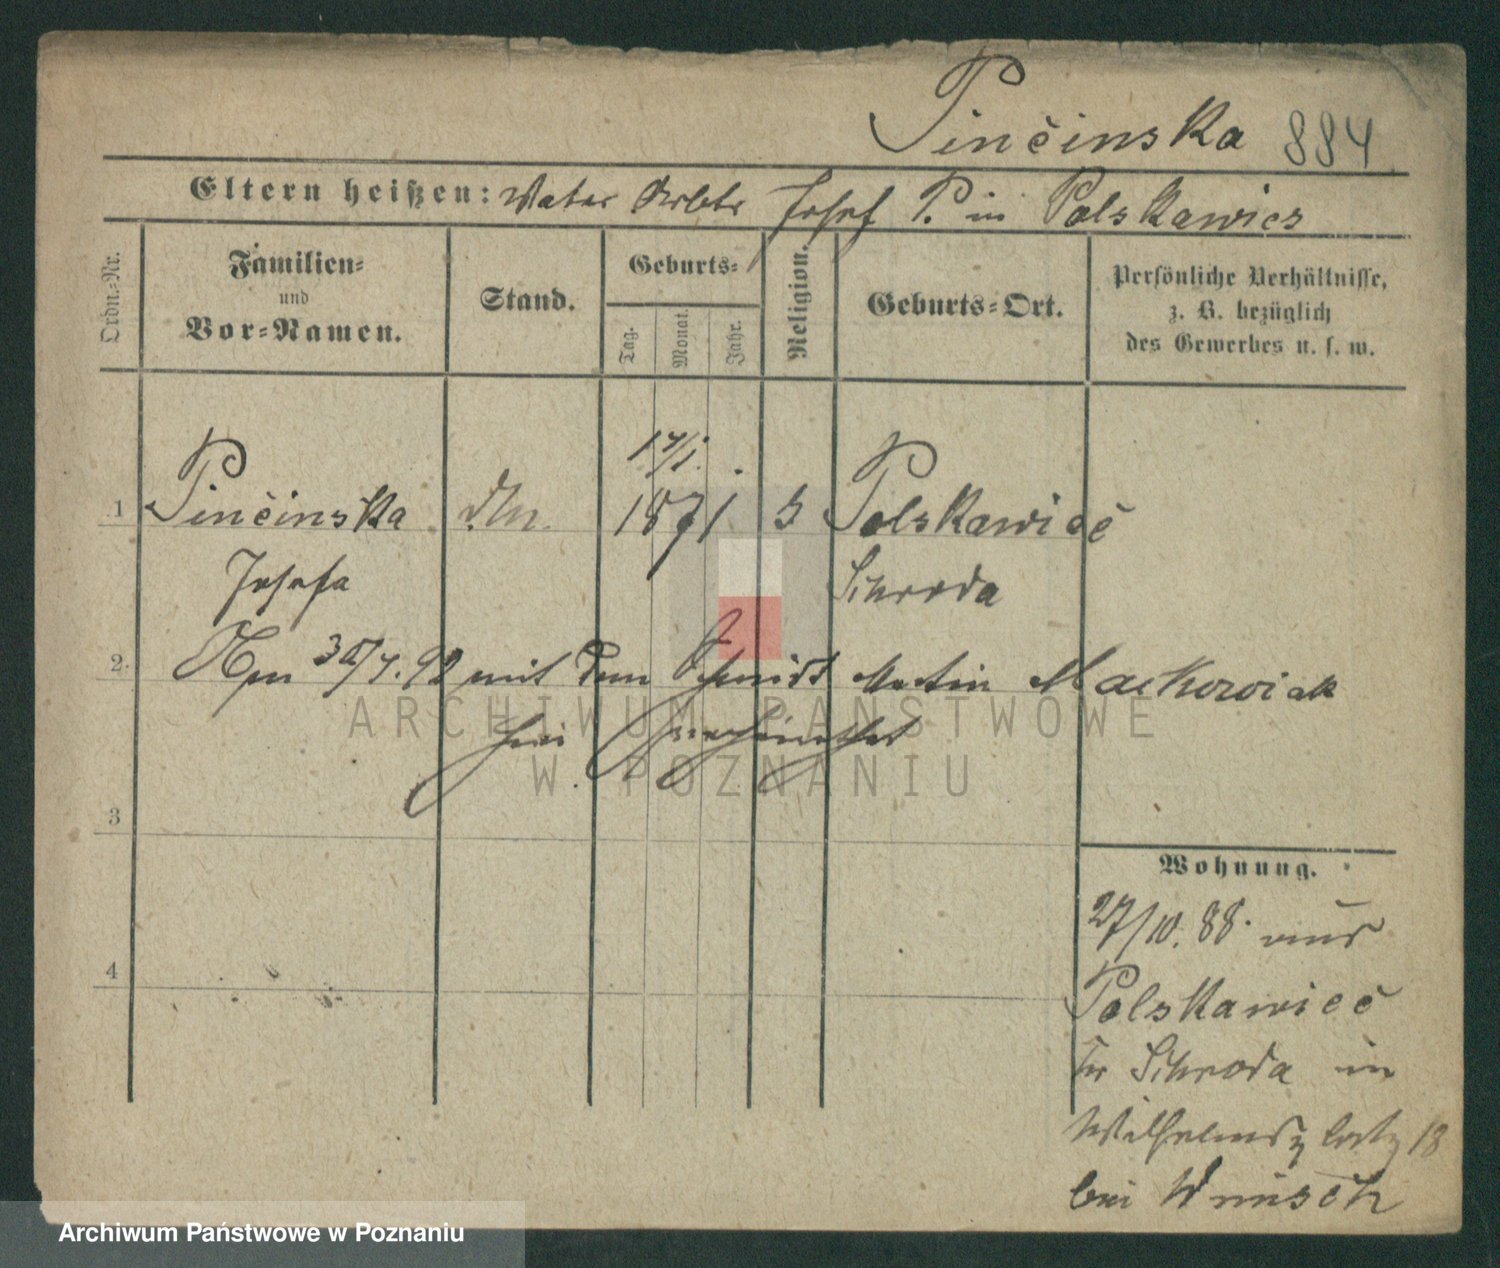 Pinčinska 884
Eltern heißen: Vater Arbtr Josef P. in Polskawies
Ordn.-Nr.
Familien-
und
Vor-Namen.
Stand.
Geburts-
Tag.
Monat.
Jahr.
Religion.
Geburts-Ort.
Persönliche Verhältnisse,
z. B. bezüglich
des Gewerbes u. s. w.
17/1.
1 Pinčinska 1871 Polskawieč
Josefa Schroda
2. 30/7. 92 mit dem Schmidt Martin Mackowiak
hier
3
Wohnung.
27/10. 88. aus
4
Polskawieč
Kr Schroda in
Wilhelmsplatz 18
bei Wunsch
ARCHIWUM PAŃSTWOWE
W POZNANIU
Archiwum Państwowe w Poznaniu